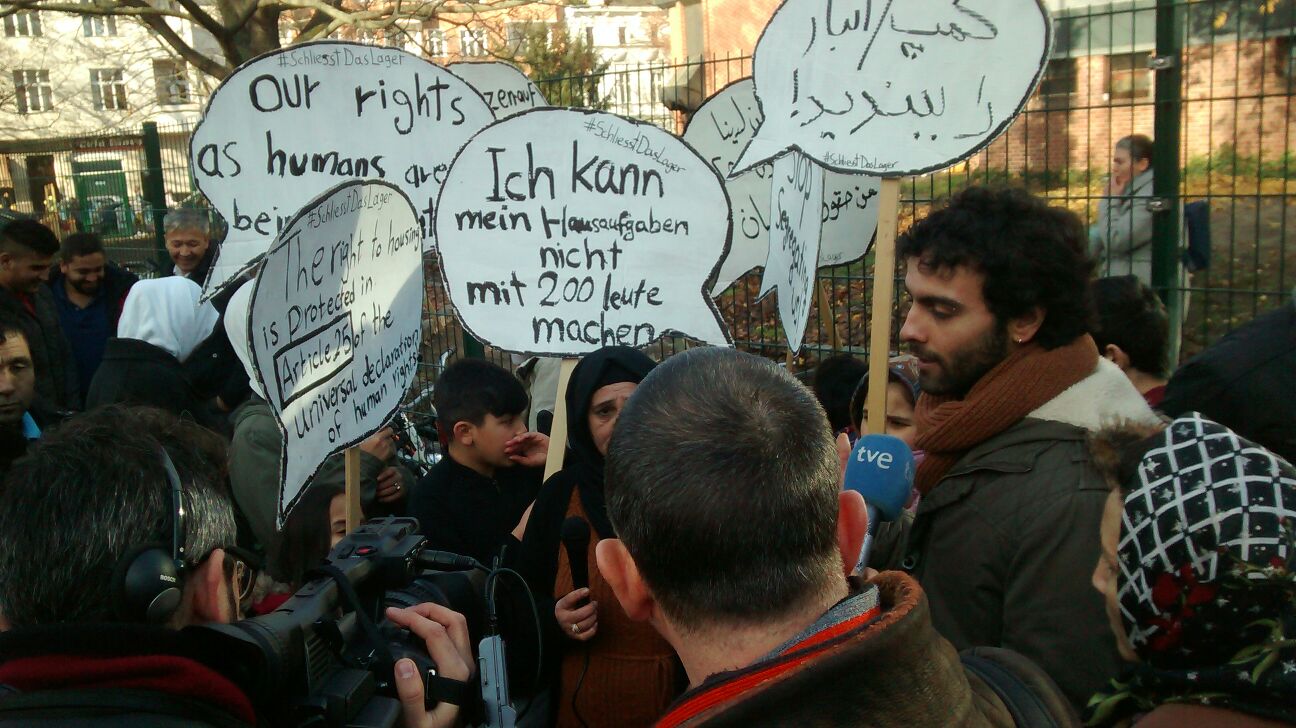 #SchliesstDasLager
Our rights
as humans are
#SchliesstDasLager
The right to housing
is protected in
Article 25 of the
universal declaration
of human rights
#SchliesstDasLager
Ich kann
mein Hausaufgaben
nicht
mit 200 leute
machen
کمپ/انبار
را ببندید!
#SchliesstDasLager
Stop
Segregation
tve
BOSCH